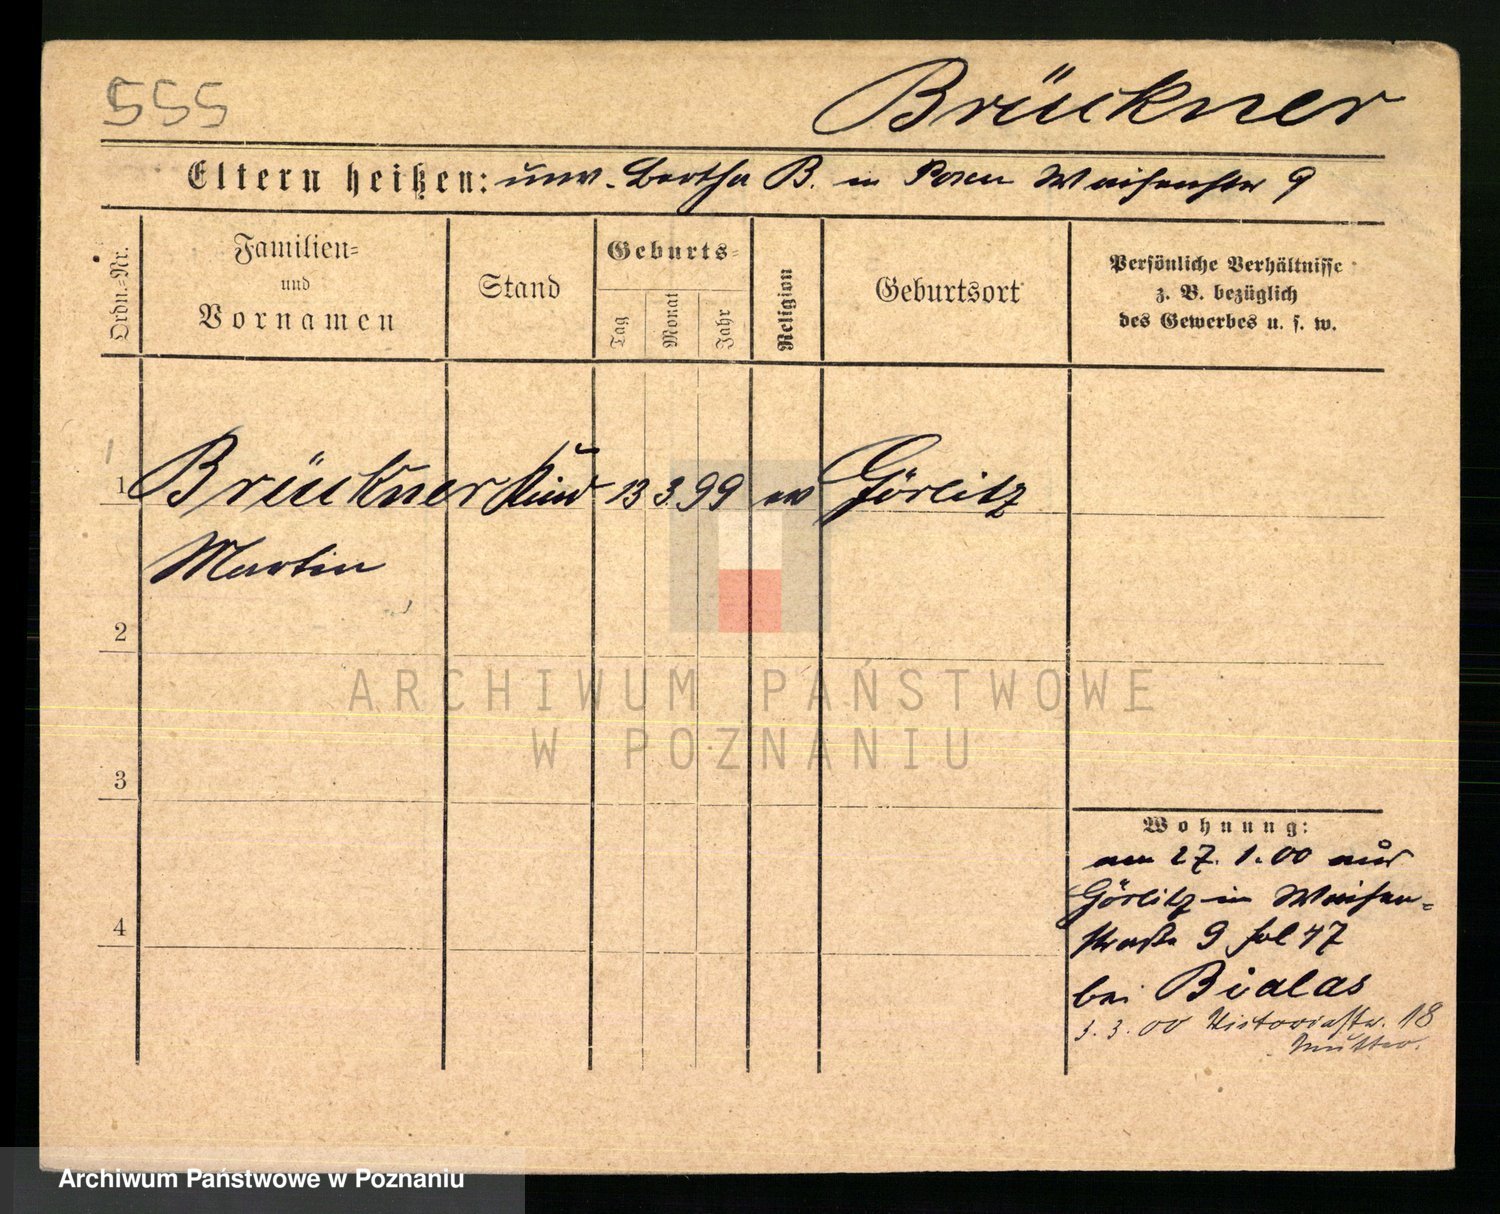 555
Brückner
Eltern heißen: unv. Bertha B. in Posen Waisenstr 9
Ordn.-Nr.
Familien-
und
Vornamen
Stand
Geburts-
Tag
Monat
Jahr
Religion
Geburtsort
Persönliche Verhältnisse
z. B. bezüglich
des Gewerbes u. s. w.
1 Brückner Kind 13 3. 99 ev Görlitz
Martin
2
ARCHIWUM PAŃSTWOWE
W POZNANIU
3
Wohnung:
am 27. 1. 00 aus
Görlitz in Waisen-
4
straße 9 fol 47
bei Bialas
3. 3. 00 Victoriastr. 18
Mutter.
Archiwum Państwowe w Poznaniu